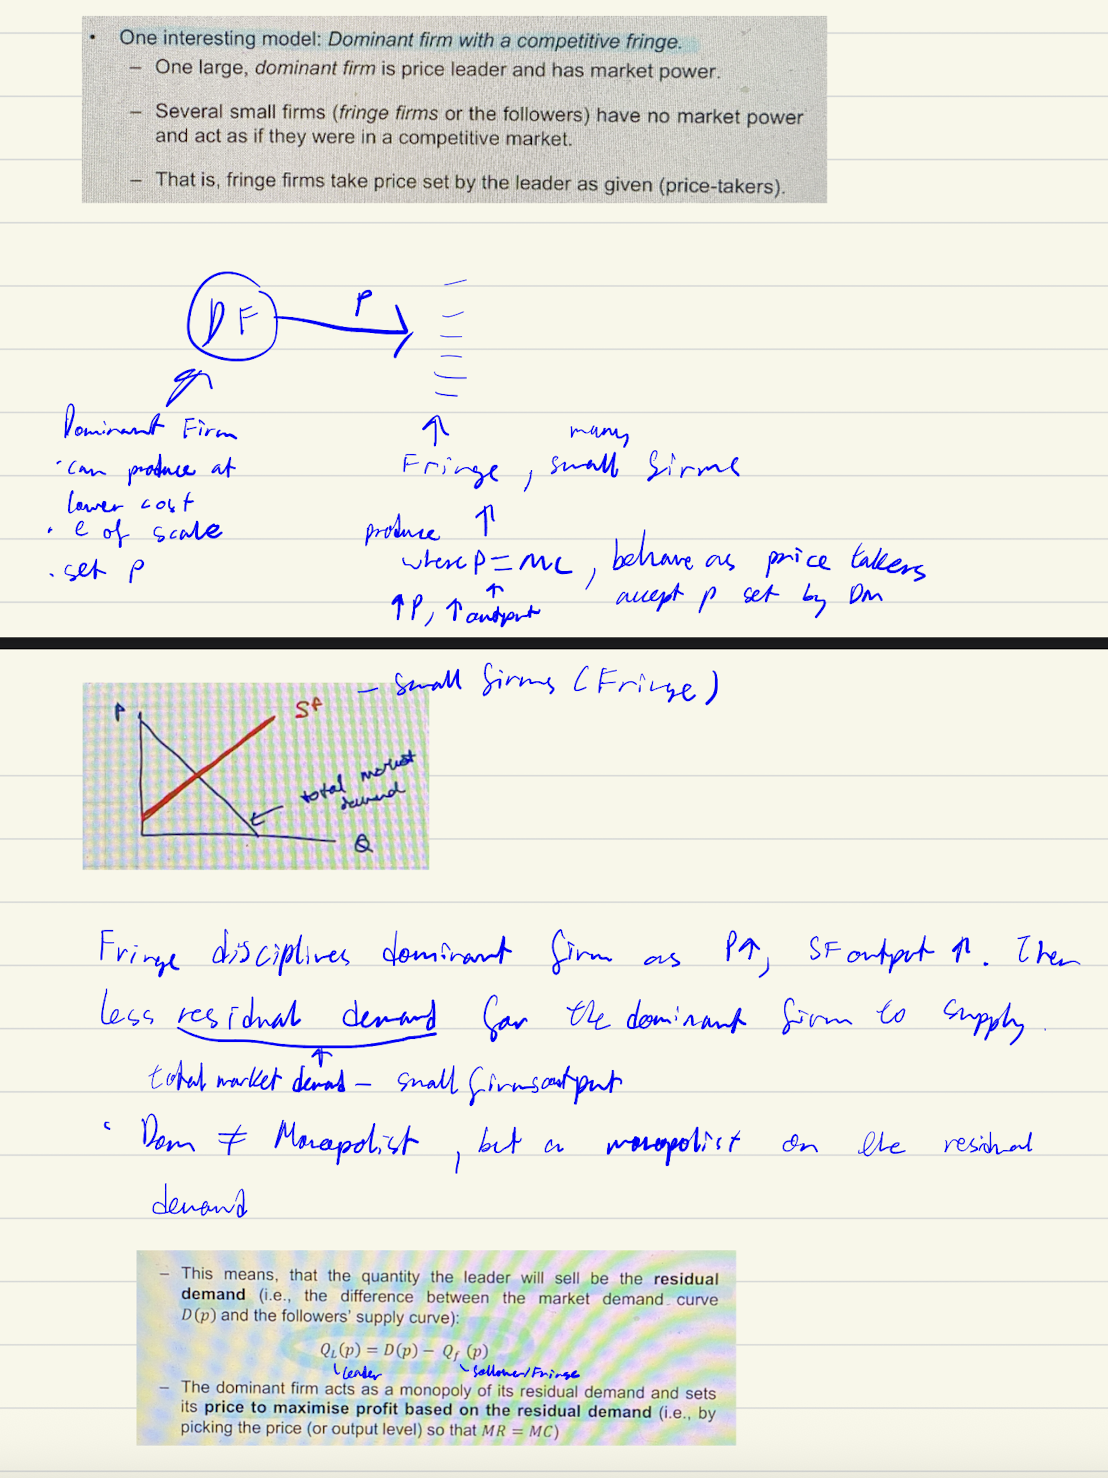 • One interesting model: Dominant firm with a competitive fringe.
– One large, dominant firm is price leader and has market power.
– Several small firms (fringe firms or the followers) have no market power
and act as if they were in a competitive market.
– That is, fringe firms take price set by the leader as given (price-takers).
DF
P
Dominant Firm
• can produce at
lower cost
• e of scale
• set p
many
Fringe, small firms
produce
where P = MC, behave as price takers
↑P, ↑output
accept p set by DM
– small firms (Fringe)
P
SF
total market
demand
Q
Fringe disciplines dominant firm as P↑, SF output ↑. Then
less residual demand for the dominant firm to supply.
total market demand – small firms output
• Dom ≠ Monopolist, but a monopolist on the residual
demand
– This means, that the quantity the leader will sell be the residual
demand (i.e., the difference between the market demand curve
D(p) and the followers' supply curve):
Q_L(p) = D(p) − Q_f (p)
leader
follower/Fringe
– The dominant firm acts as a monopoly of its residual demand and sets
its price to maximise profit based on the residual demand (i.e., by
picking the price (or output level) so that MR = MC)